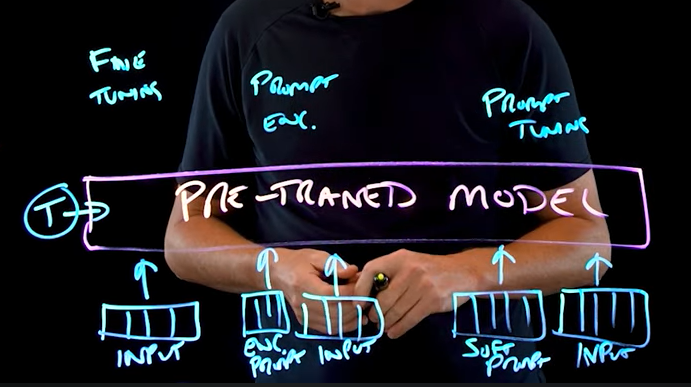 FINE
TUNING
PROMPT
ENG.
PROMPT
TUNING
T
PRE-TRANED MODEL
INPUT
ENG.
PROMPT
INPUT
SOFT
PROMPT
INPUT